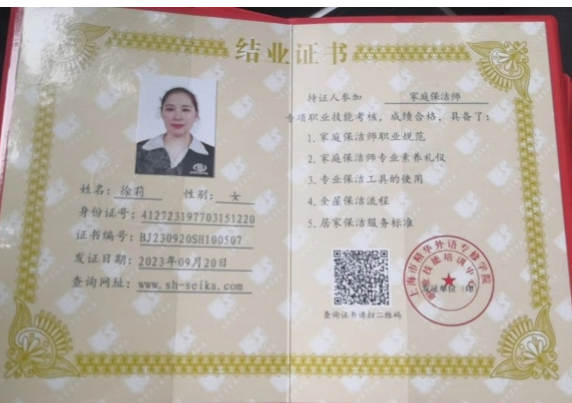 结业证书
姓名：徐莉 性别：女
身份证号：412723197703151220
证书编号：BJ230920SH100507
发证日期：2023年09月20日
查询网址：www.sh-seika.com
持证人参加 家庭保洁师
专项职业技能考核，成绩合格，具备了：
1.家庭保洁师职业规范
2.家庭保洁师专业素养礼仪
3.专业保洁工具的使用
4.全屋保洁流程
5.居家保洁服务标准
上海市精华外语专修学院
职业技能培训中心
发证单位（章）
查询证书请扫二维码